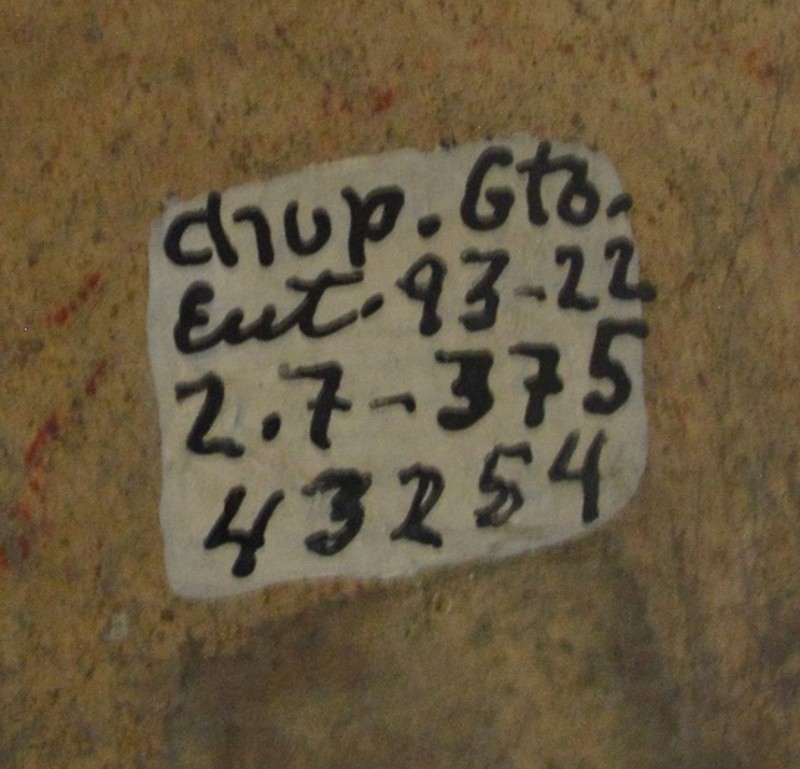 chup. Gto.
Ent. 93-22
2.7-375
43254